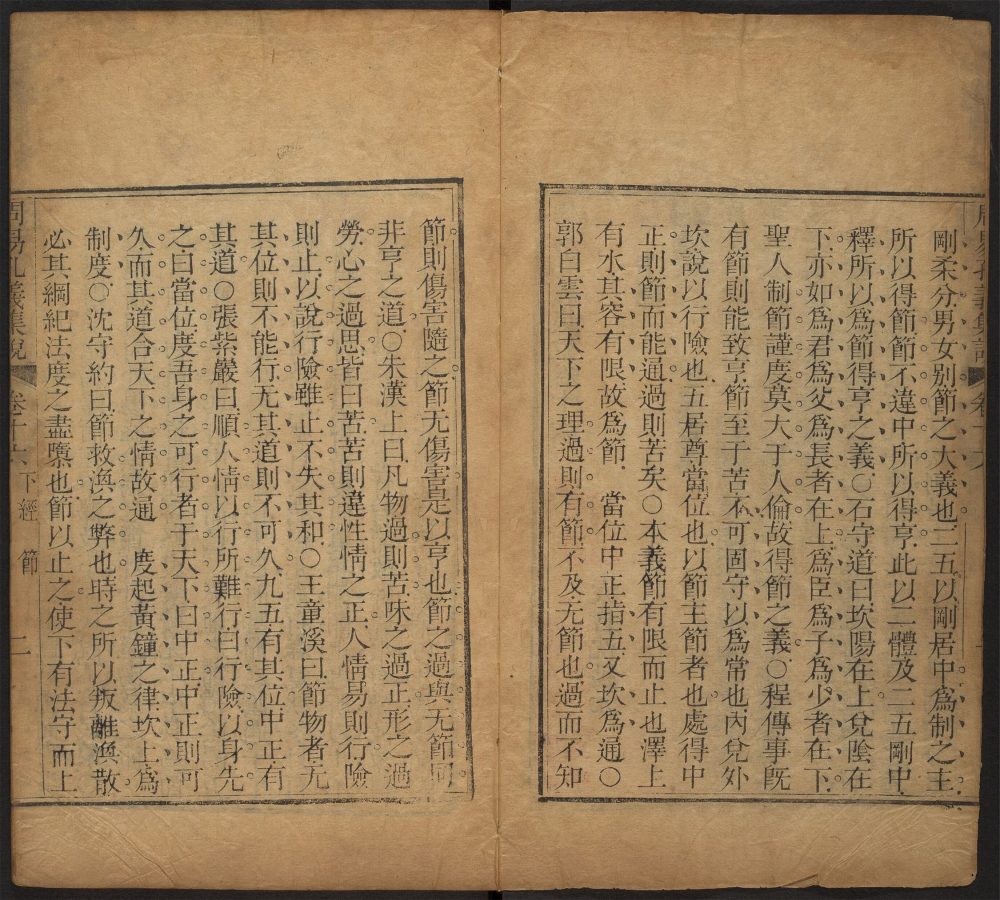 剛柔分男女別節之大義也二五以剛居中爲制之主
所以得節節不違中所以得亨此以二體及二五剛中
釋所以爲節得亨之義○石守道曰坎陽在上兌陰在
下亦如爲君爲父爲長者在上爲臣爲子爲少者在下
聖人制節謹度莫大于人倫故得節之義○程傳事旣
有節則能致亨節至于苦不可固守以爲常也內兌外
坎說以行險也五居尊當位也以節主節者也處得中
正則節而能通過則苦矣○本義節有限而止也澤上
有水其容有限故爲節 當位中正指五又坎爲通○
郭白雲曰天下之理過則有節不及无節也過而不知
節則傷害隨之節无傷害是以亨也節之過與无節同
非亨之道○朱漢上曰凡物過則苦味之過正形之過
勞心之過思皆曰苦苦則違性情之正人情易則行險
則止以說行險雖止不失其和○王童溪曰節物者无
其位則不能行无其道則不可久九五有其位中正有
其道○張紫巖曰順人情以行所難行曰行險以身先
之曰當位度吾身之可行者于天下曰中正中正則可
久而其道合天下之情故通 度起黃鐘之律坎上爲
制度○沈守約曰節救渙之弊也時之所以叛離渙散
必其綱紀法度之盡隳也節以止之使下有法守而上
周易孔義集說 卷十六 下經 節 二